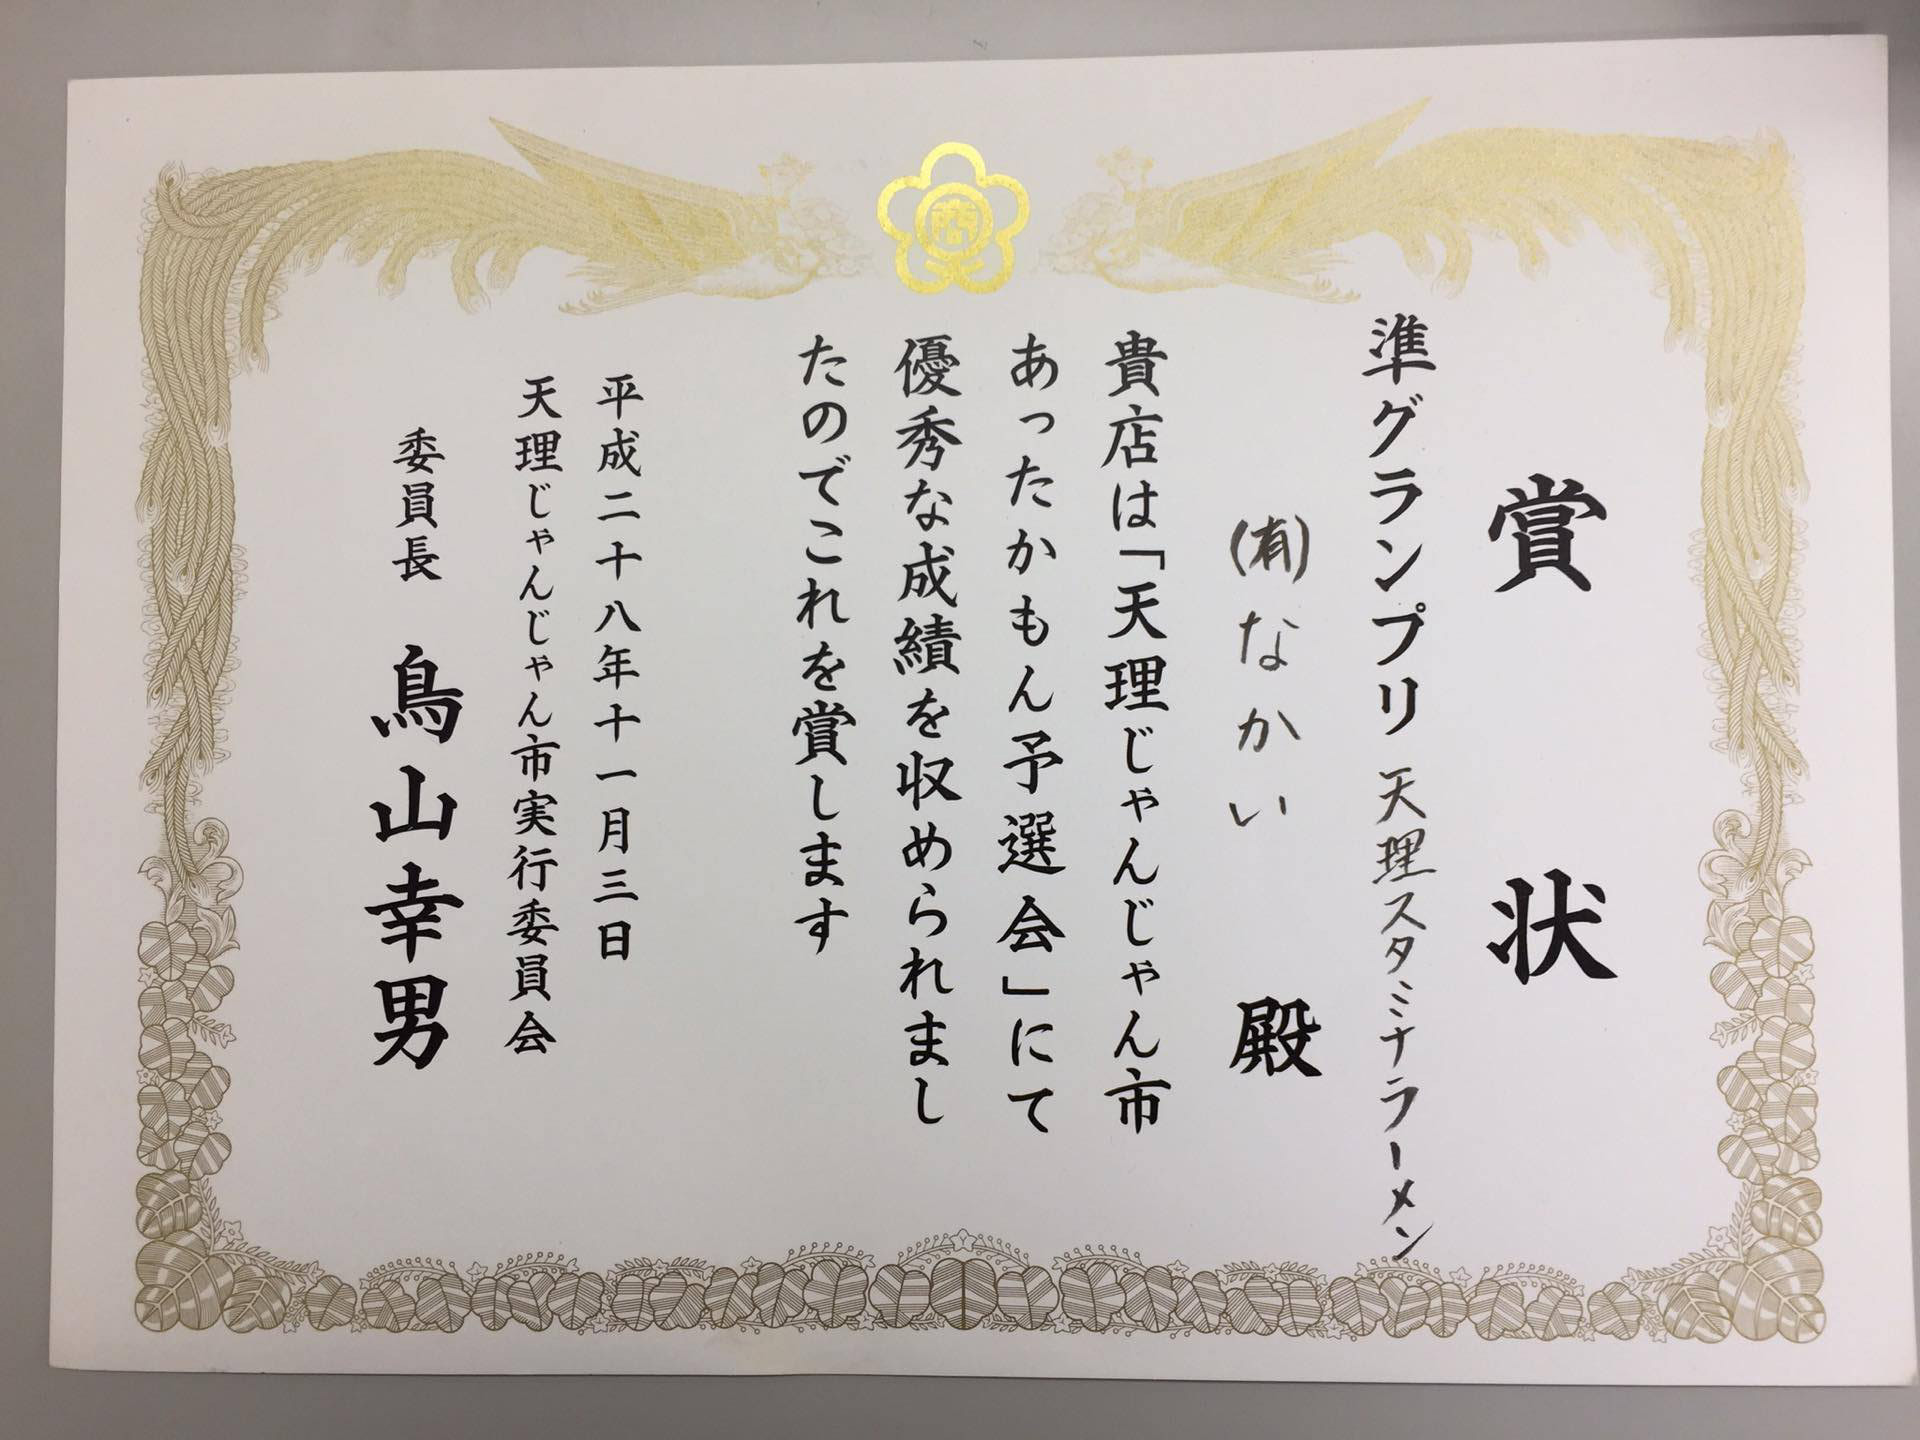 賞状
準グランプリ 天理スタミナラーメン
(有)なかい 殿
貴店は「天理じゃんじゃん市
あったかもん予選会」にて
優秀な成績を収められまし
たのでこれを賞します
平成二十八年十一月三日
天理じゃんじゃん市実行委員会
委員長 鳥山幸男
商